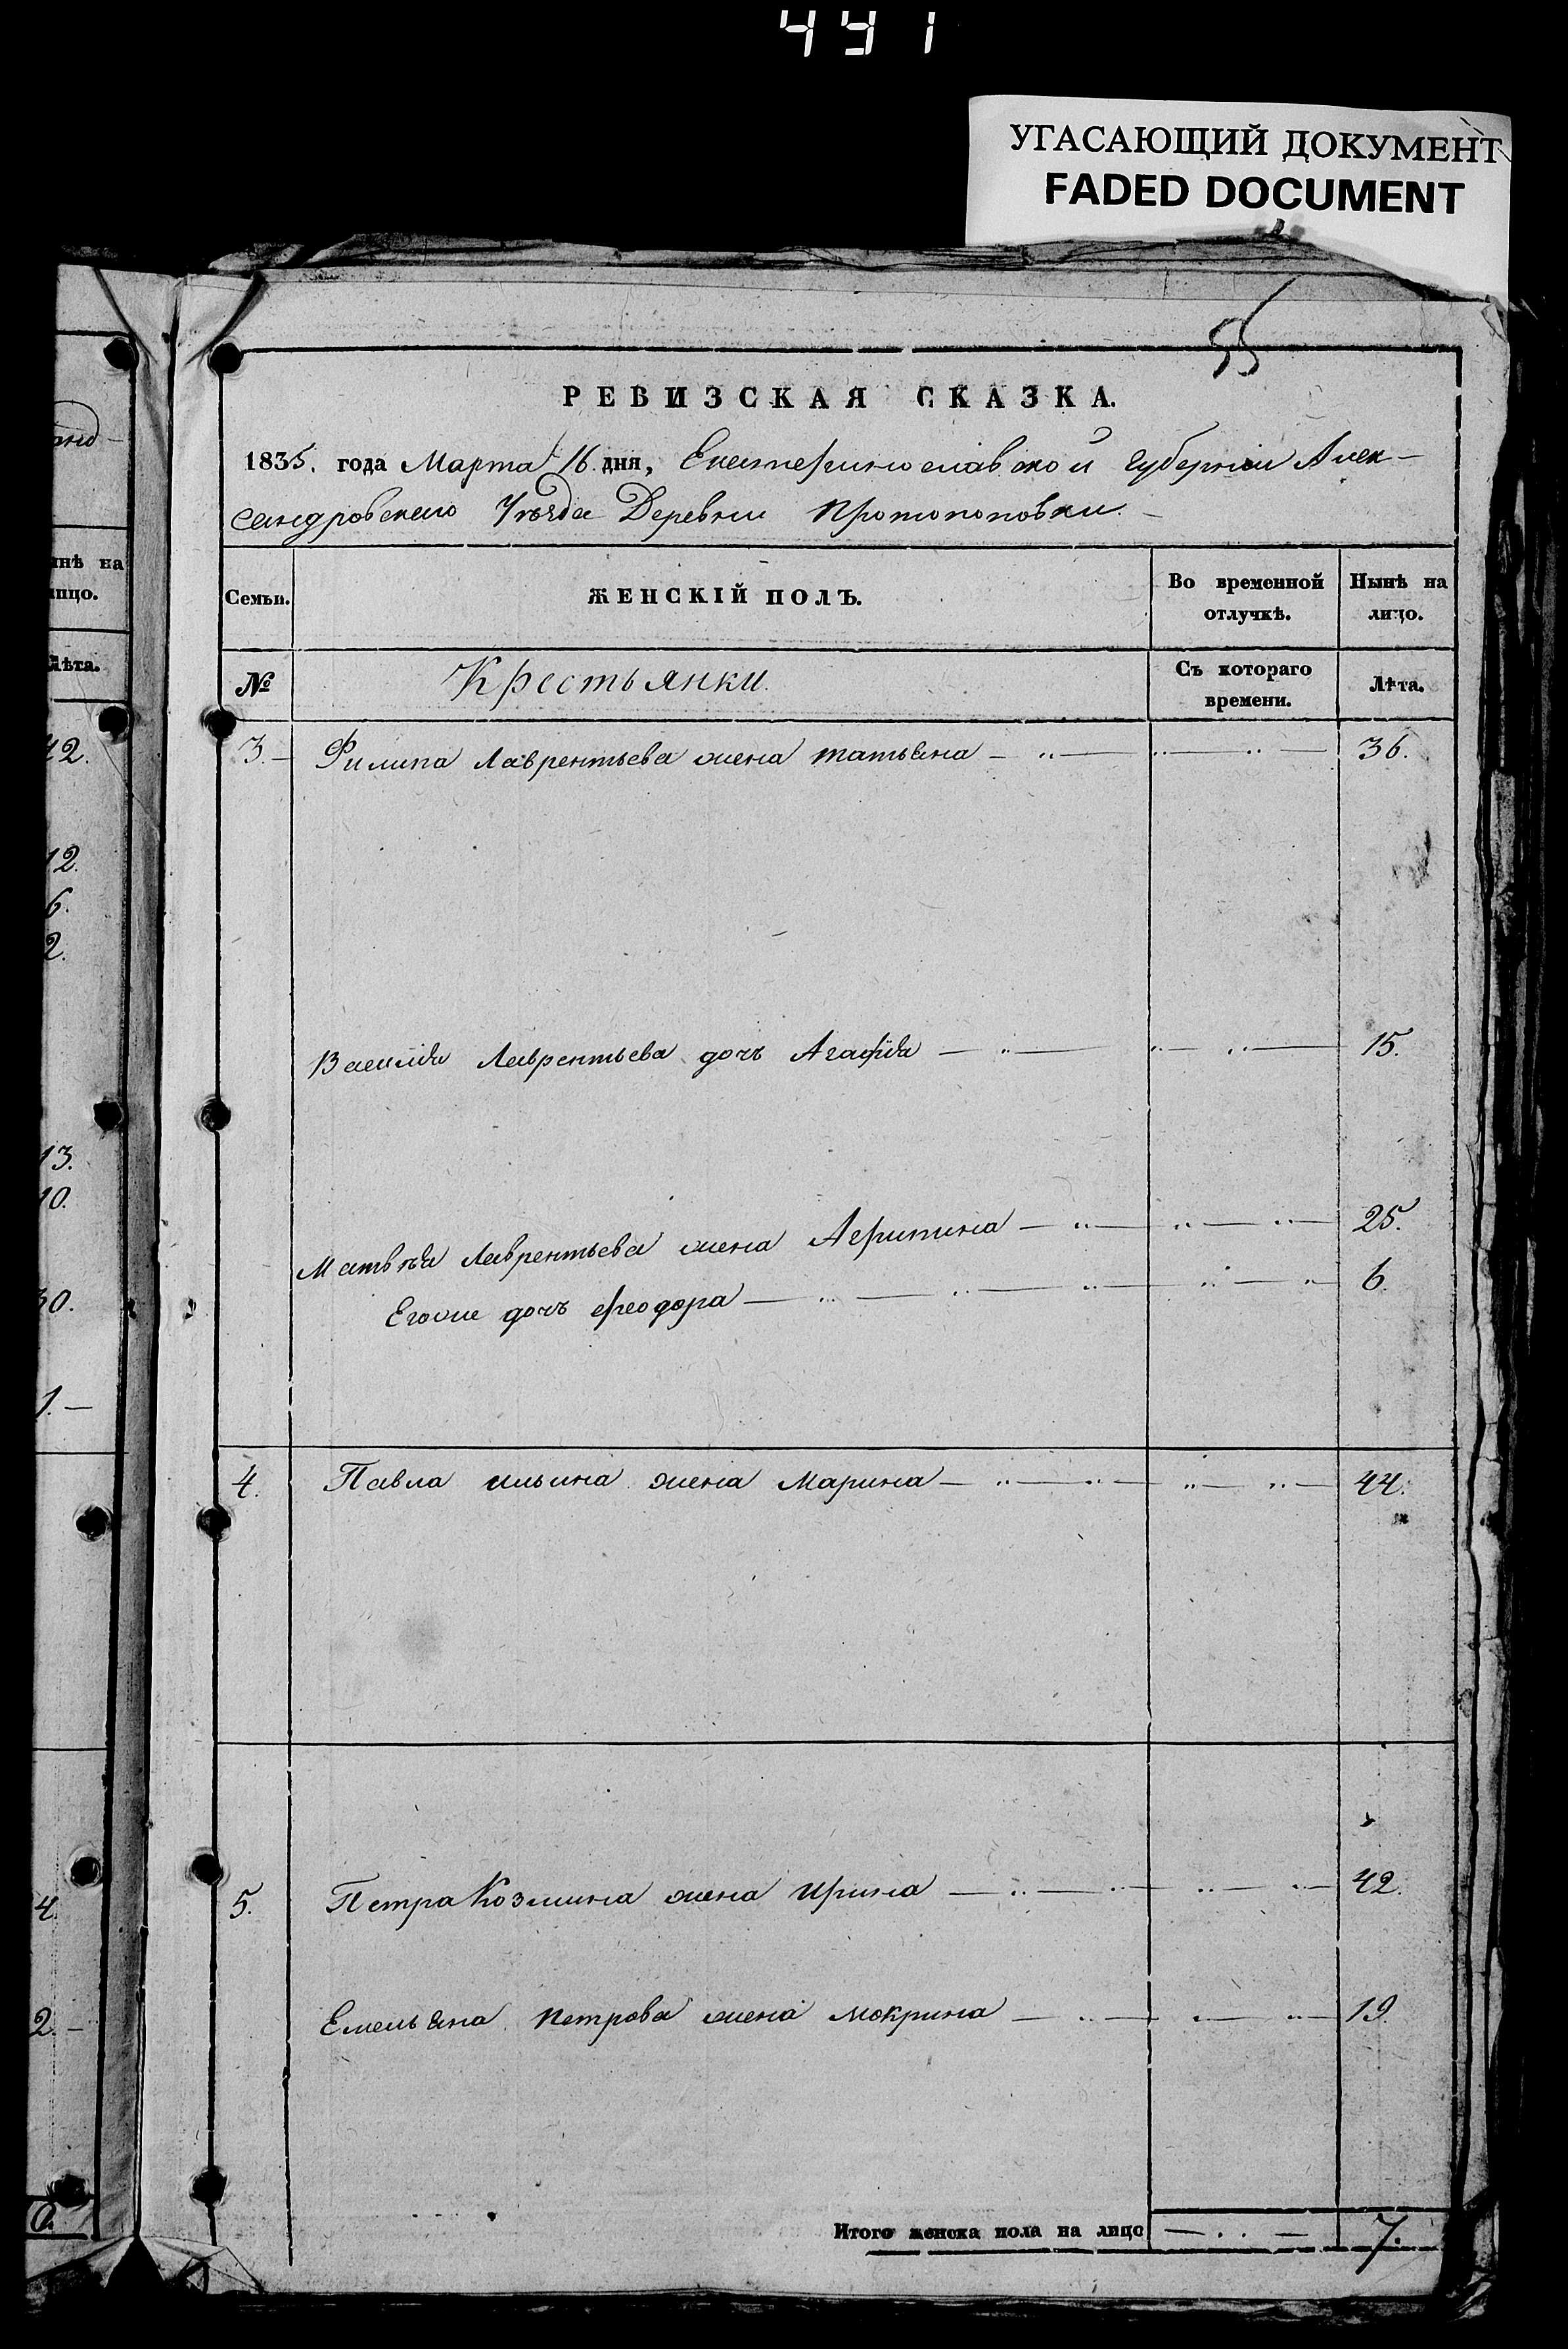 441
УГАСАЮЩИЙ ДОКУМЕНТ
FADED DOCUMENT
55
РЕВИЗСКАЯ СКАЗКА.
1835. года Марта 16 дня, Екатеринославской губернии Алек-
сандровскаго Уѣзда Деревни Протопоповки.
Семьи. ЖЕНСКІЙ ПОЛЪ. Во временной отлучкѣ. Нынѣ на лицо.
№ Крестьянки. Съ котораго времени. Лѣта.
3. Филипа Лаврентьева жена татьяна 36.
Василія Лаврентьева дочь Агафія 15.
Матвѣя Лаврентьева жена Агрипина 25.
Егоже дочь Феодора 6.
4. Павла ильина жена Марина 44.
5. Петра Козмина жена Ирина 42.
Емельяна петрова жена мокрина 19.
Итого женска пола на лицо 7.
анд-
нѣ на
ицо.
Лѣта.
42.
12.
6.
2.
13.
10.
30.
1.-
4.
2.-
0.